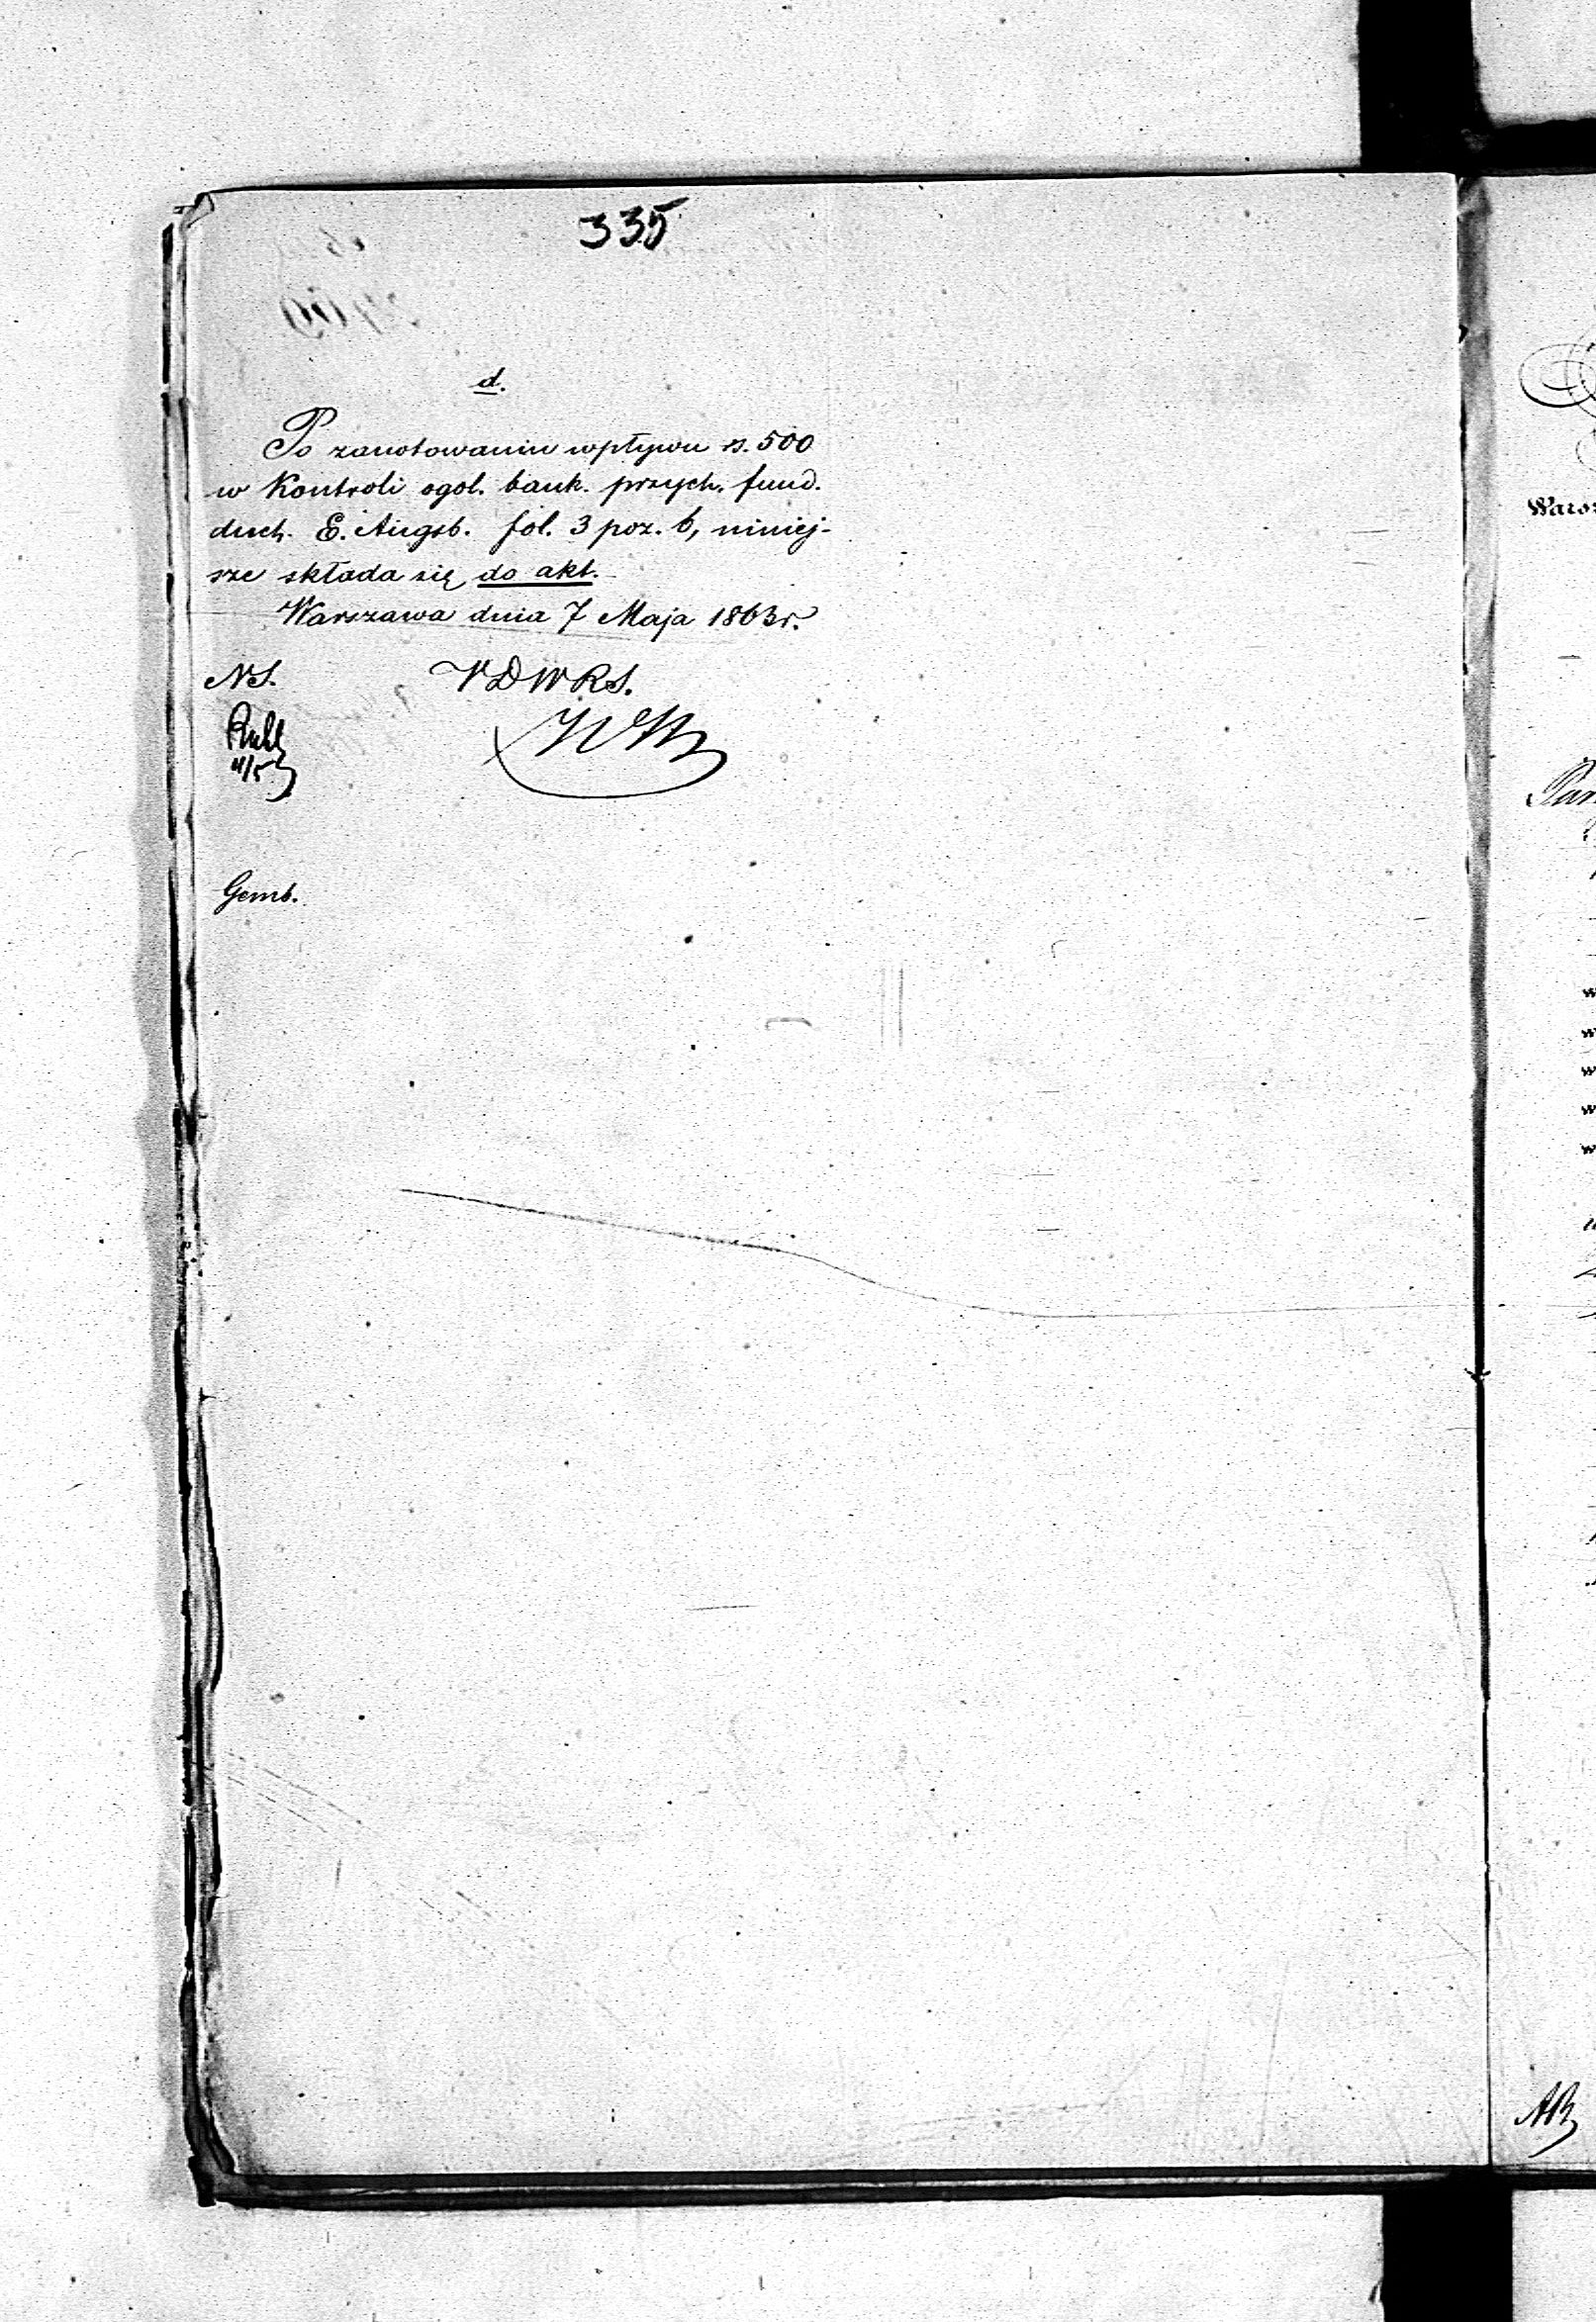 335
d.
Po zanotowaniu wpływu rs. 500
w Kontroli ogol. bank. przych. fund.
duch. E. Augsb. fol. 3 poz. 6, niniej-
sze składa się do akt.
Warszawa dnia 7 Maja 1863r.
NS. VDWRS.
11/5
Gemb.